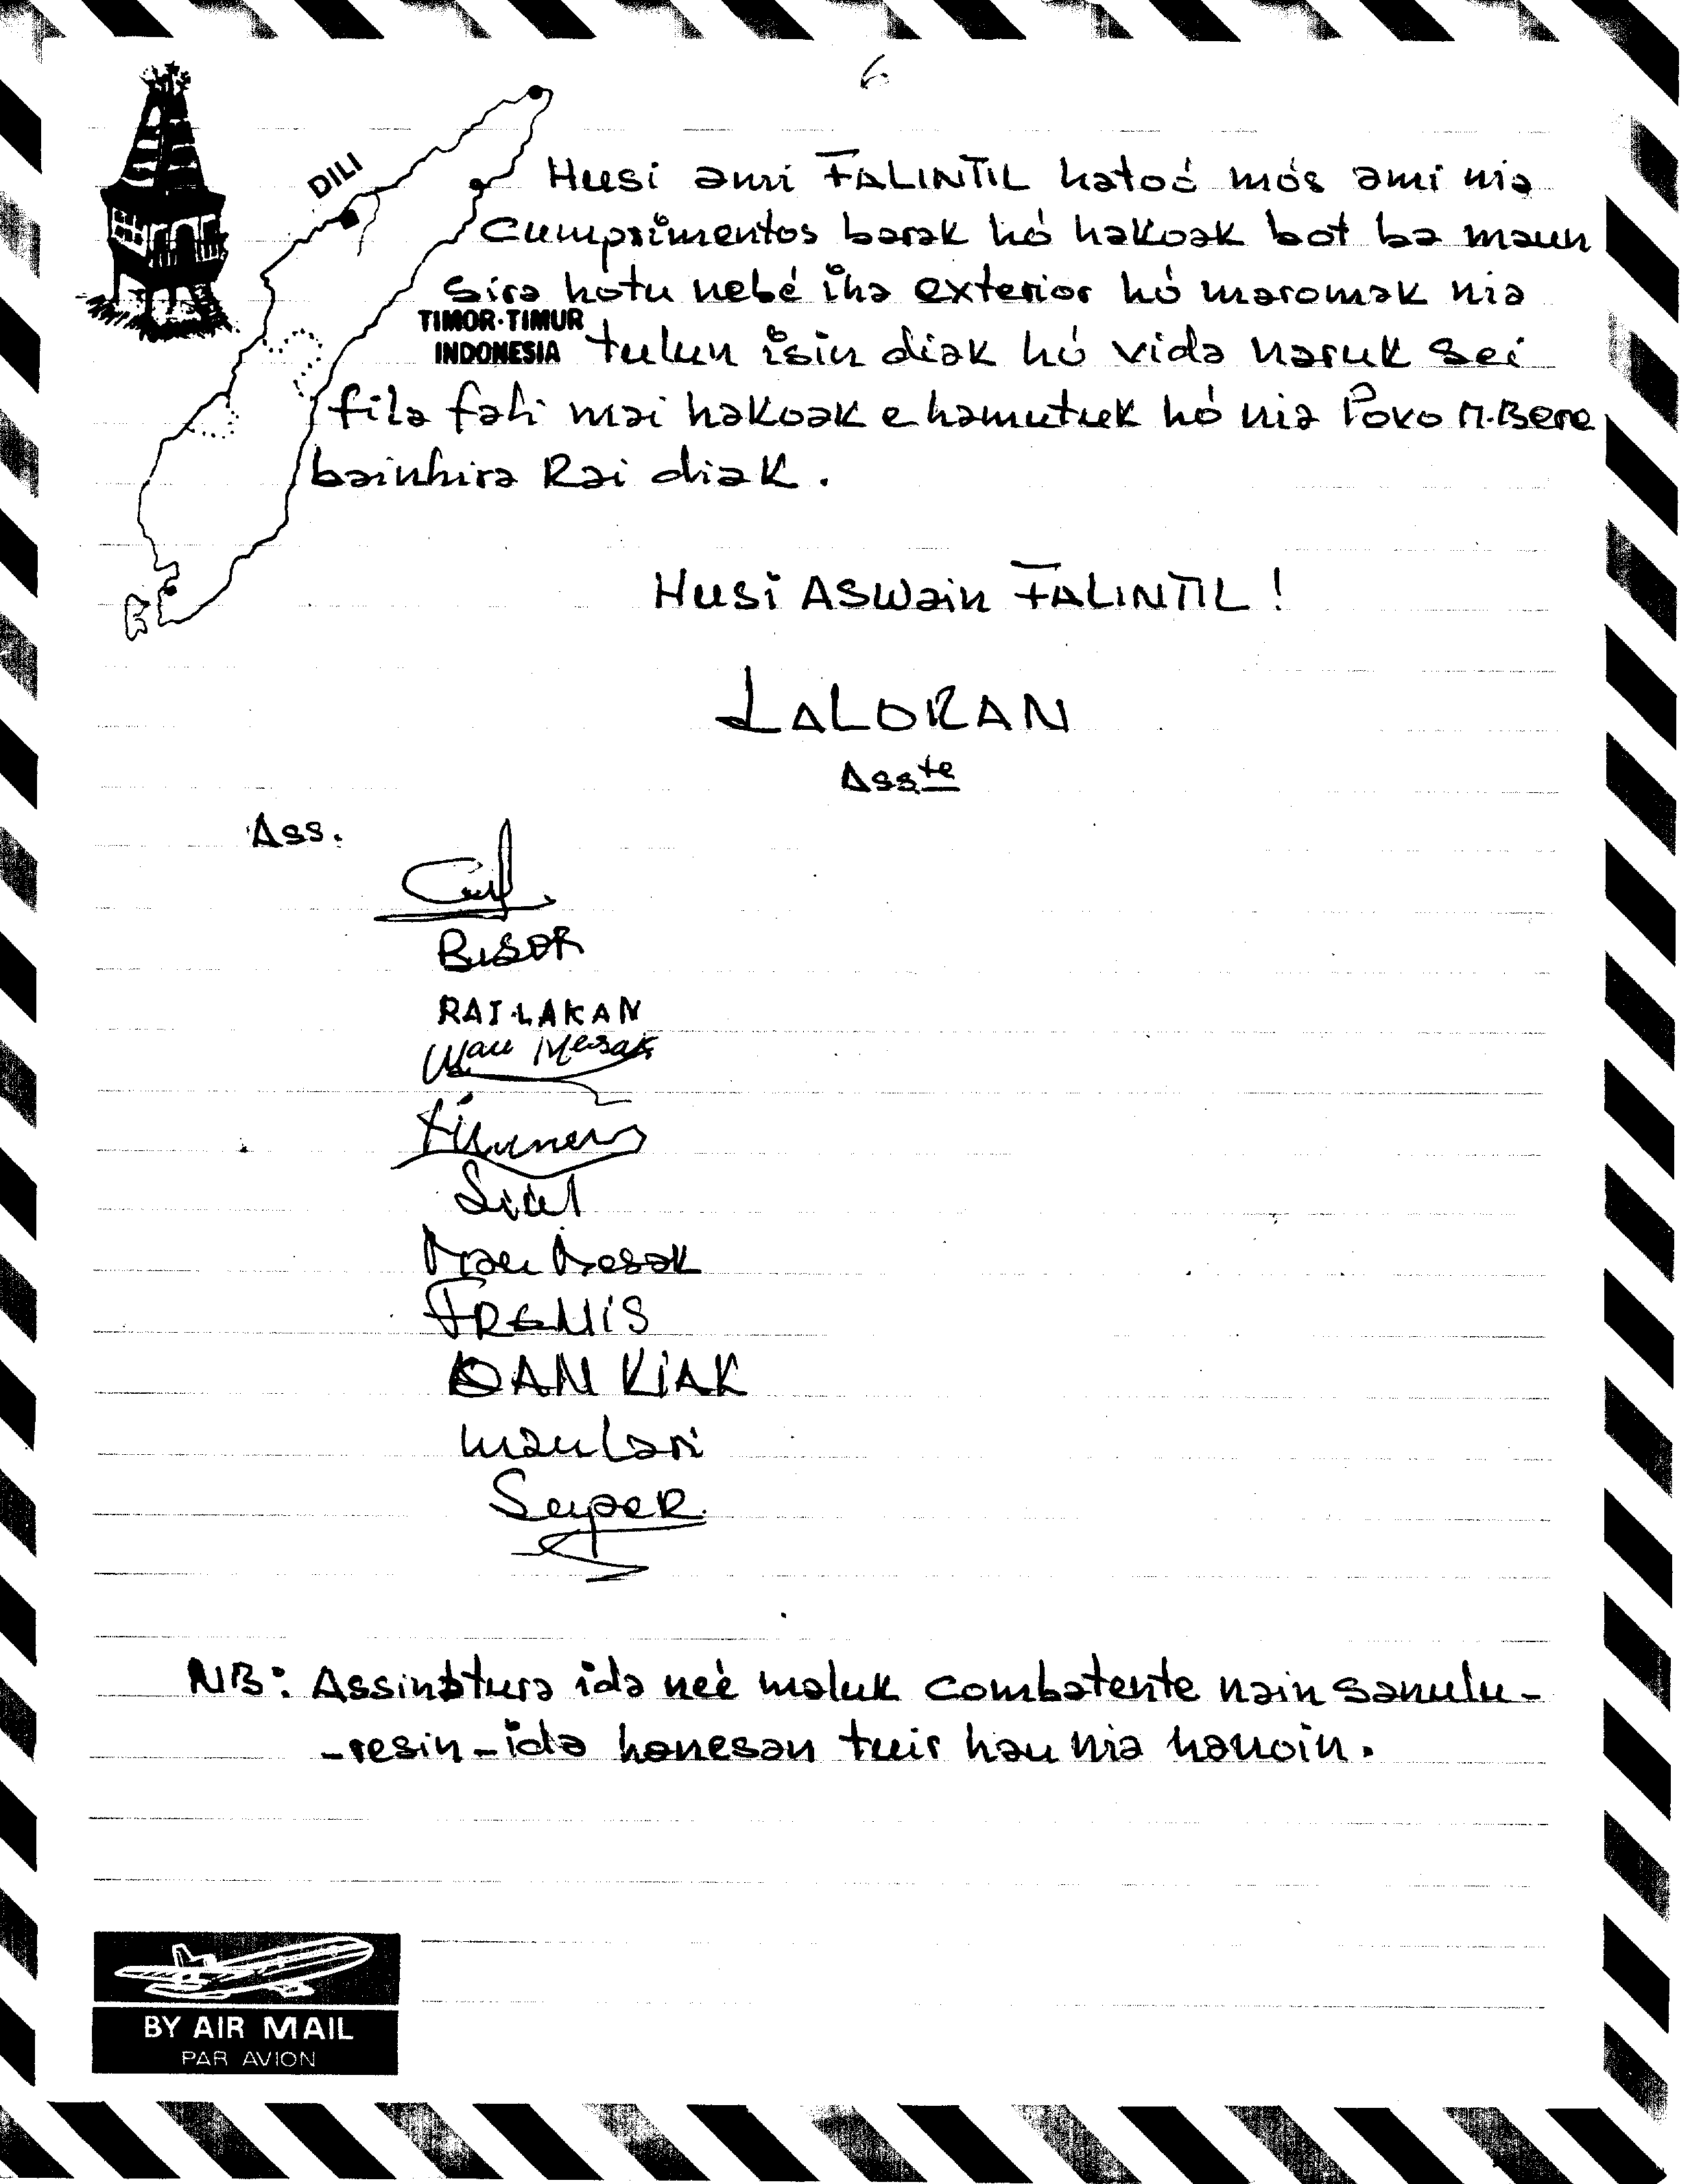 6.
DILI
Husi ami FALINTIL hatoó mós ami nia
Cumprimentos barak hó hakoak bot ba maun
Sira hotu nebé iha exterior hó maromak nia
TIMOR·TIMUR
INDONESIA
tulun isin diak hó vida naruk sei
fila fali mai hakoak e hamutuk hó nia Povo M.Bere
bainhira Rai diak.
Husi ASWain FALINTIL!
LALORAN
Asste
Ass.
RAI-LAKAN
Mau Mesak
Mau Mesak
KIAK
maulari
Super
NB: Assinatura ida neé maluk combatente nain sanulu-
-resin-ida hanesan tuir hau nia hanoin.
BY AIR MAIL
PAR AVION